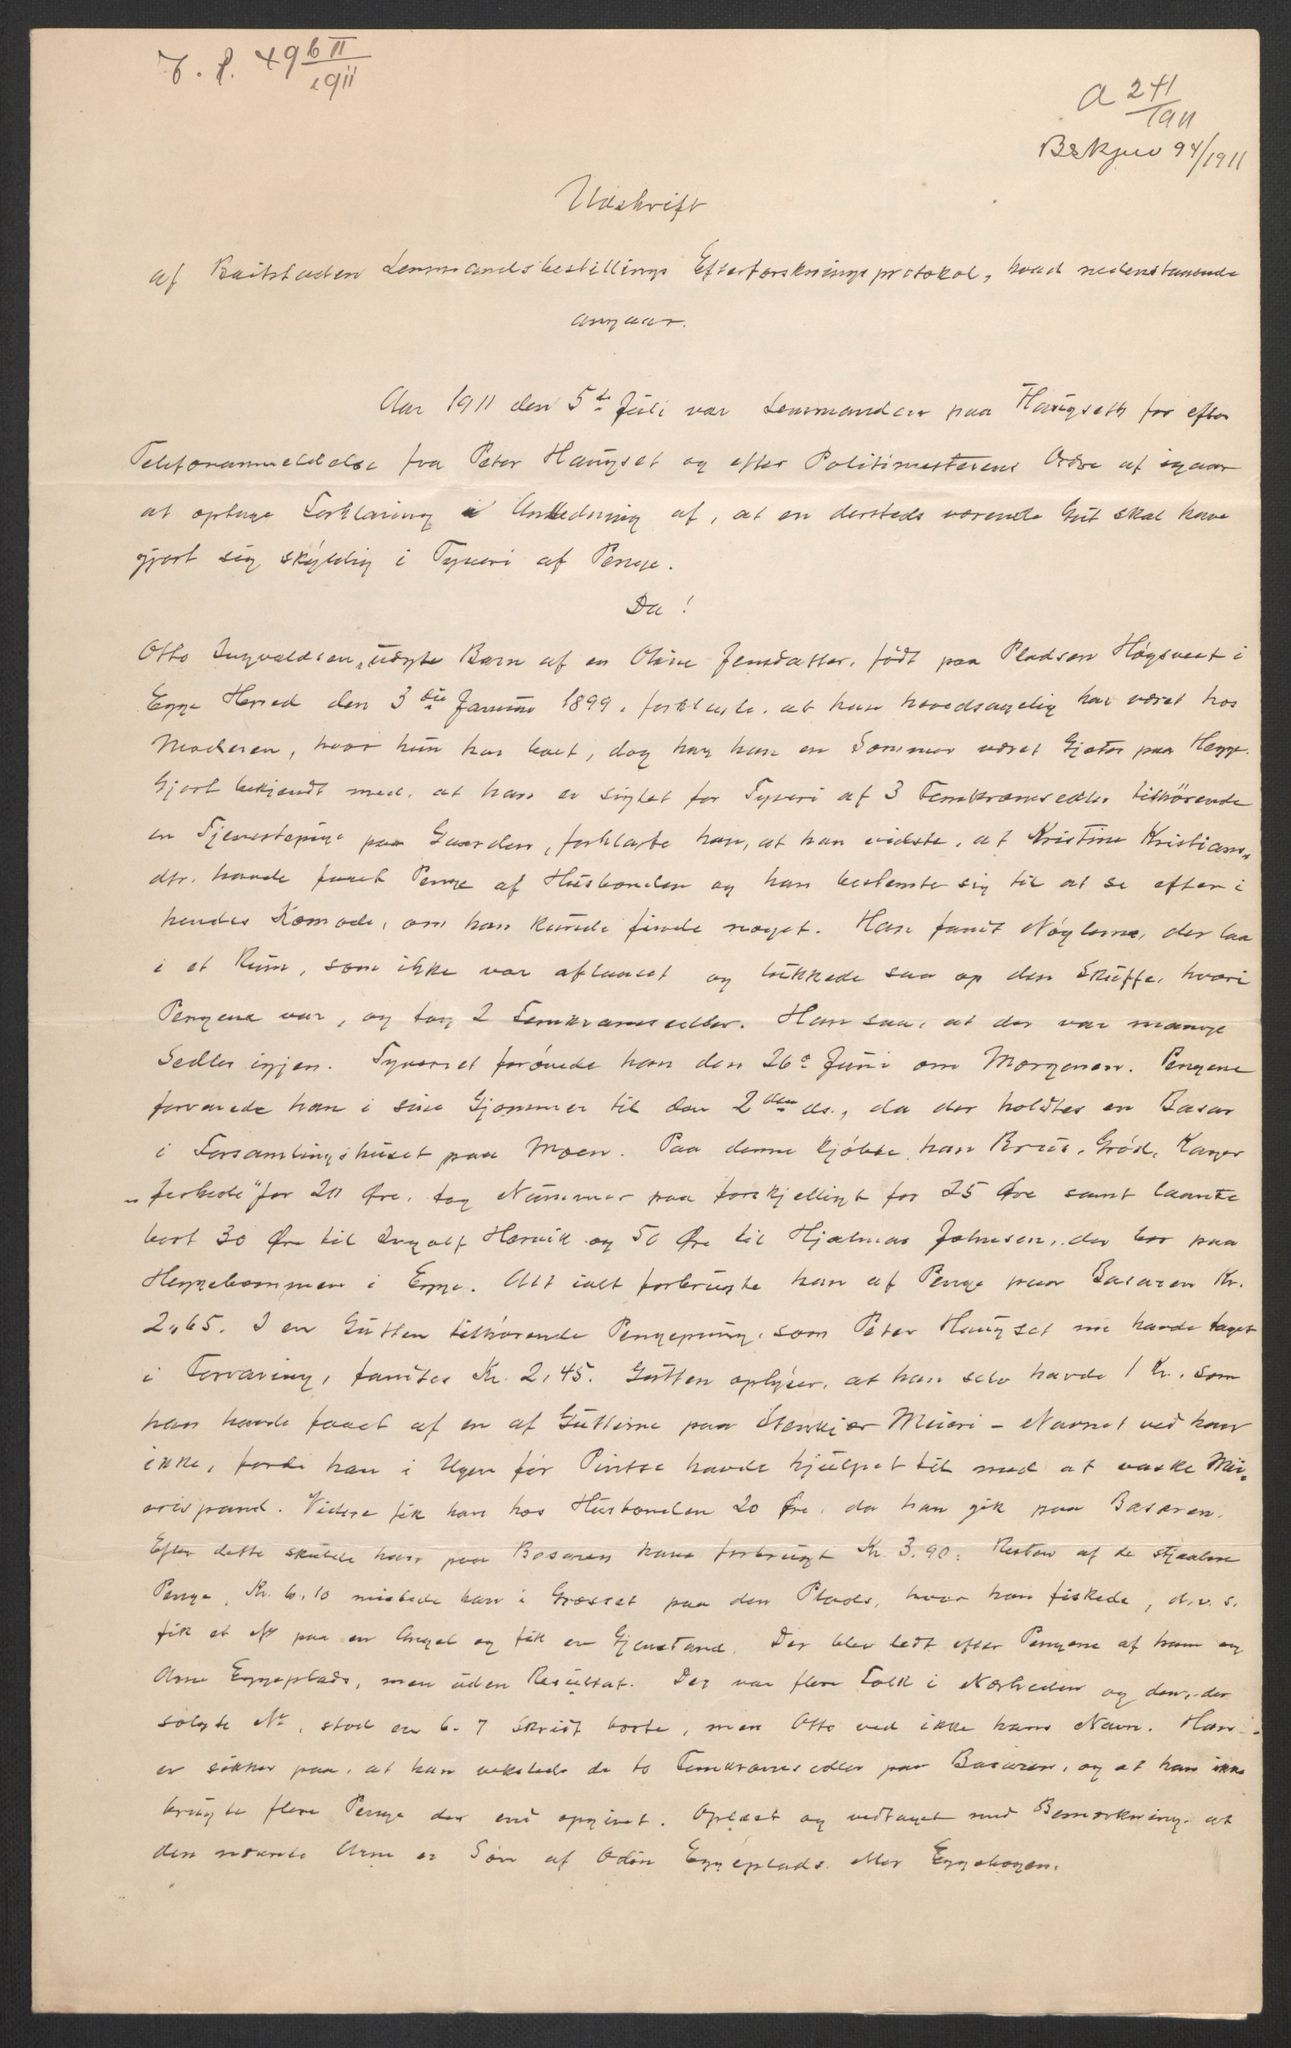 J. P. 496 II/1911
A 241/1911
Bs kjur 94/1911
Udskrift
af Beitstaden Lensmandsbestillings Efterforskningsprotokol, hvad nedenstaaende
angaar.
Aar 1911 den 5te Juli var Lensmanden paa Haugseth for efter
Telefonanmeldelse fra Peter Haugset og efter Politimesterens Ordre af igaar
at optage Forklaring i Anledning af, at en dersteds værende Gut skal have
gjort sig skyldig i Tyveri af Penge.
Da!
Otto Ingvaldsen, uægte Barn af en Oline Jensdatter, født paa Pladsen Høgsveet i
Egge Herred den 3die Januar 1899, forklarte, at han hovedsagelig har været hos
Moderen, hvor hun har boet, dog har han en Sommer været Gjæter paa Hegge.
Gjort bekjendt med, at han er sigtet for Tyveri af 3 Femkronesedler tilhørende
en Tjenestepige paa Gaarden, forklarte han, at han vidste, at Kristine Kristians-
dtr. havde faaet Penge af Husbonden og han bestemte sig til at se efter i
hendes Komode, om han kunde finde noget. Han fandt Nøglerne, der laa
i et Rum, som ikke var aflaaset og lukkede saa op den Skuffe, hvori
Pengene var, og tog 2 Femkronesedler. Han saa, at der var mange
Sedler igjen. Tyveriet forøvede han den 26e Juni om Morgenen. Pengene
forvarede han i sine Gjømmer til den 2den ds., da der holdtes en Basar
i Forsamlingshuset paa Moen. Paa denne kjøbte han Brus, Grød, Kager
„fiskede" for 20 Øre, tog Nummer paa forskjelligt for 25 Øre samt laante
bort 30 Øre til Ingolf Hærvik og 50 Øre til Hjalmar Johnsen, der bor paa
Heggebommen i Egge. Alt ialt forbrugte han af Penge paa Basaren Kr.
2,65. I en Gutten tilhørende Pengepung, som Peter Haugset nu havde taget
i Forvaring, fandtes Kr. 2,45. Gutten oplyser, at han selv havde 1 Kr. som
han havde faaet af en af Gutterne paa Stenkjær Meieri - Navnet ved han
ikke, fordi han i Ugen før Pintse havde hjulpet til med at vaske Mei-
erispand. Videre fik han hos Husbonden 20 Øre, da han gik paa Basaren.
Efter dette skulde han paa Basaren have forbrugt Kr. 3.90. Resten af de stjaalne
Penge, Kr. 6,10 mistede han i Græsset paa den Plads, hvor han fiskede, d.v.s.
fik et No paa en Angel og fik en Gjenstand. Der blev ledt efter Pengene af ham og
Arne Eggeplads, men uden Resultat. Der var flere Folk i Nærheden og den, der
solgte No, stod en 6-7 Skridt borte, men Otto ved ikke hans Navn. Han
er sikker paa, at han vekslede de to Femkronesedler paa Basaren, og at han ikke
brugte flere Penge der end opgivet. Oplæst og vedtaget med Bemærkning at
den nævnte Arne er Søn af Odin Eggeplads eller Eggehogen.